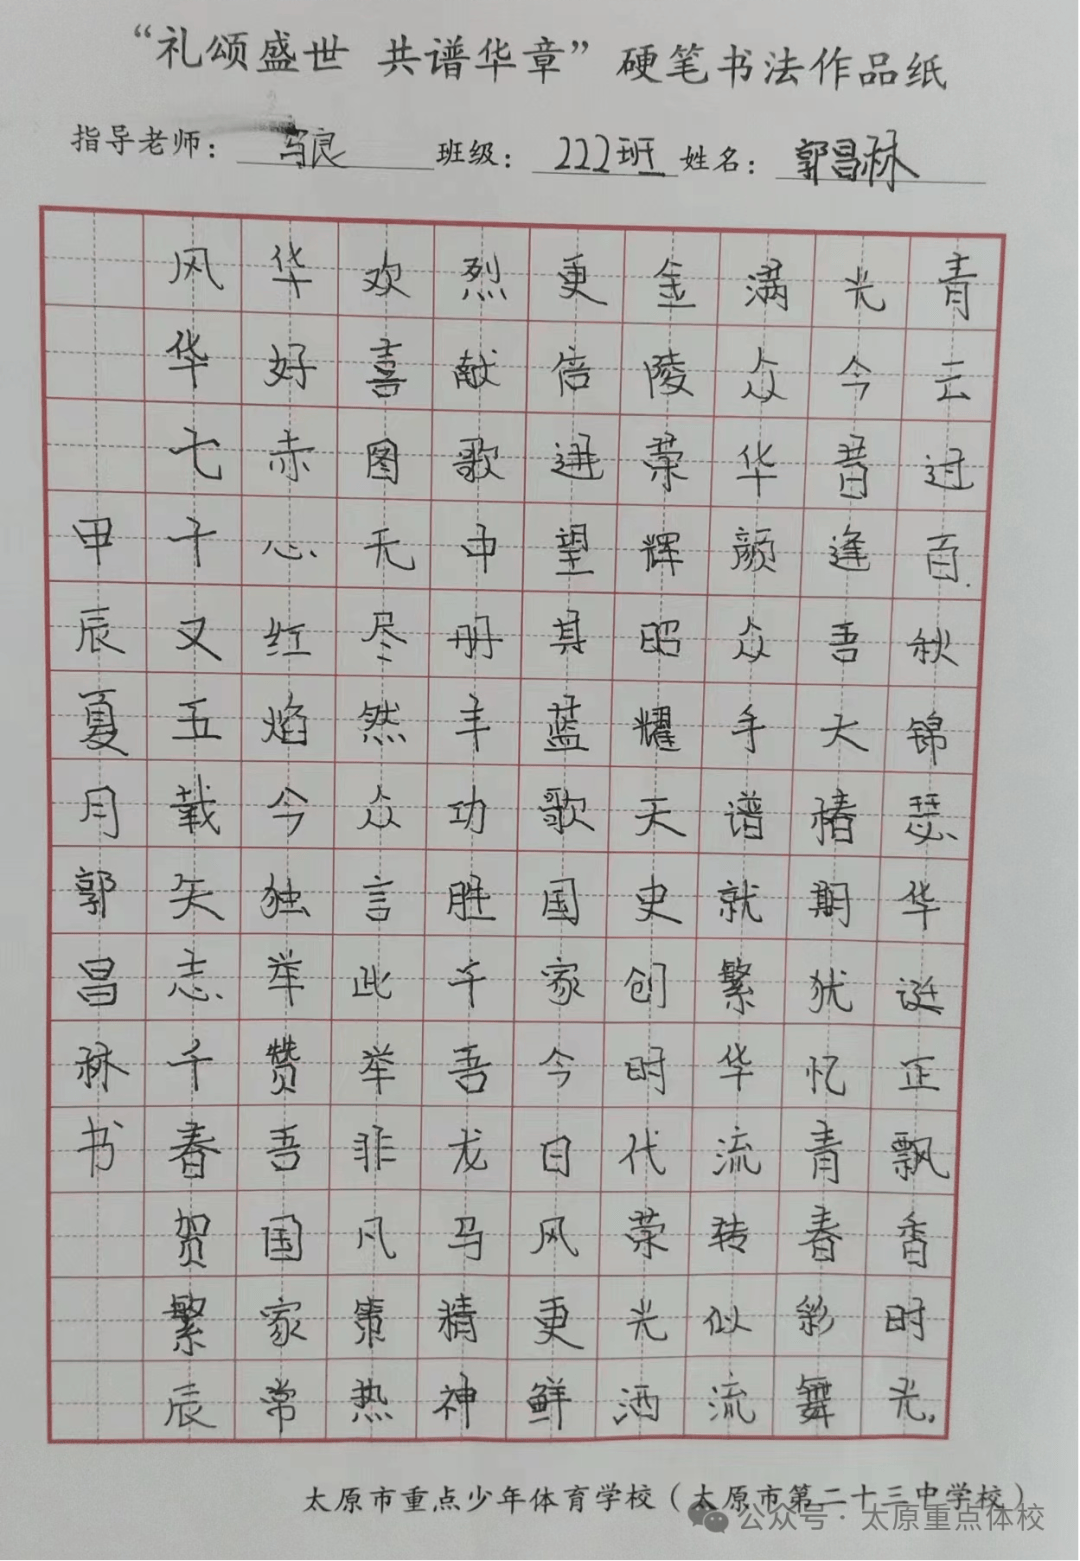 “礼颂盛世 共谱华章”硬笔书法作品纸
指导老师： 良 班级：222班 姓名：郭昌林
青云过百秋锦瑟华诞正飘香时光.
光今昔逢吾大椿期犹忆青春彩舞
满众华颜众手谱就繁华流转似流
金陵荣辉昭耀天史创时代荣光洒
更倍进望其蓝歌国家今日风更鲜
烈献歌中册丰功胜千吾龙马精神
欢喜图无尽然众言此举非凡热
华好赤心红焰今独举赞吾国家常
风华七十又五载矢志千春贺繁辰
甲辰夏月郭昌林书
太原市重点少年体育学校（太原市第二十三中学校）
公众号·太原重点体校